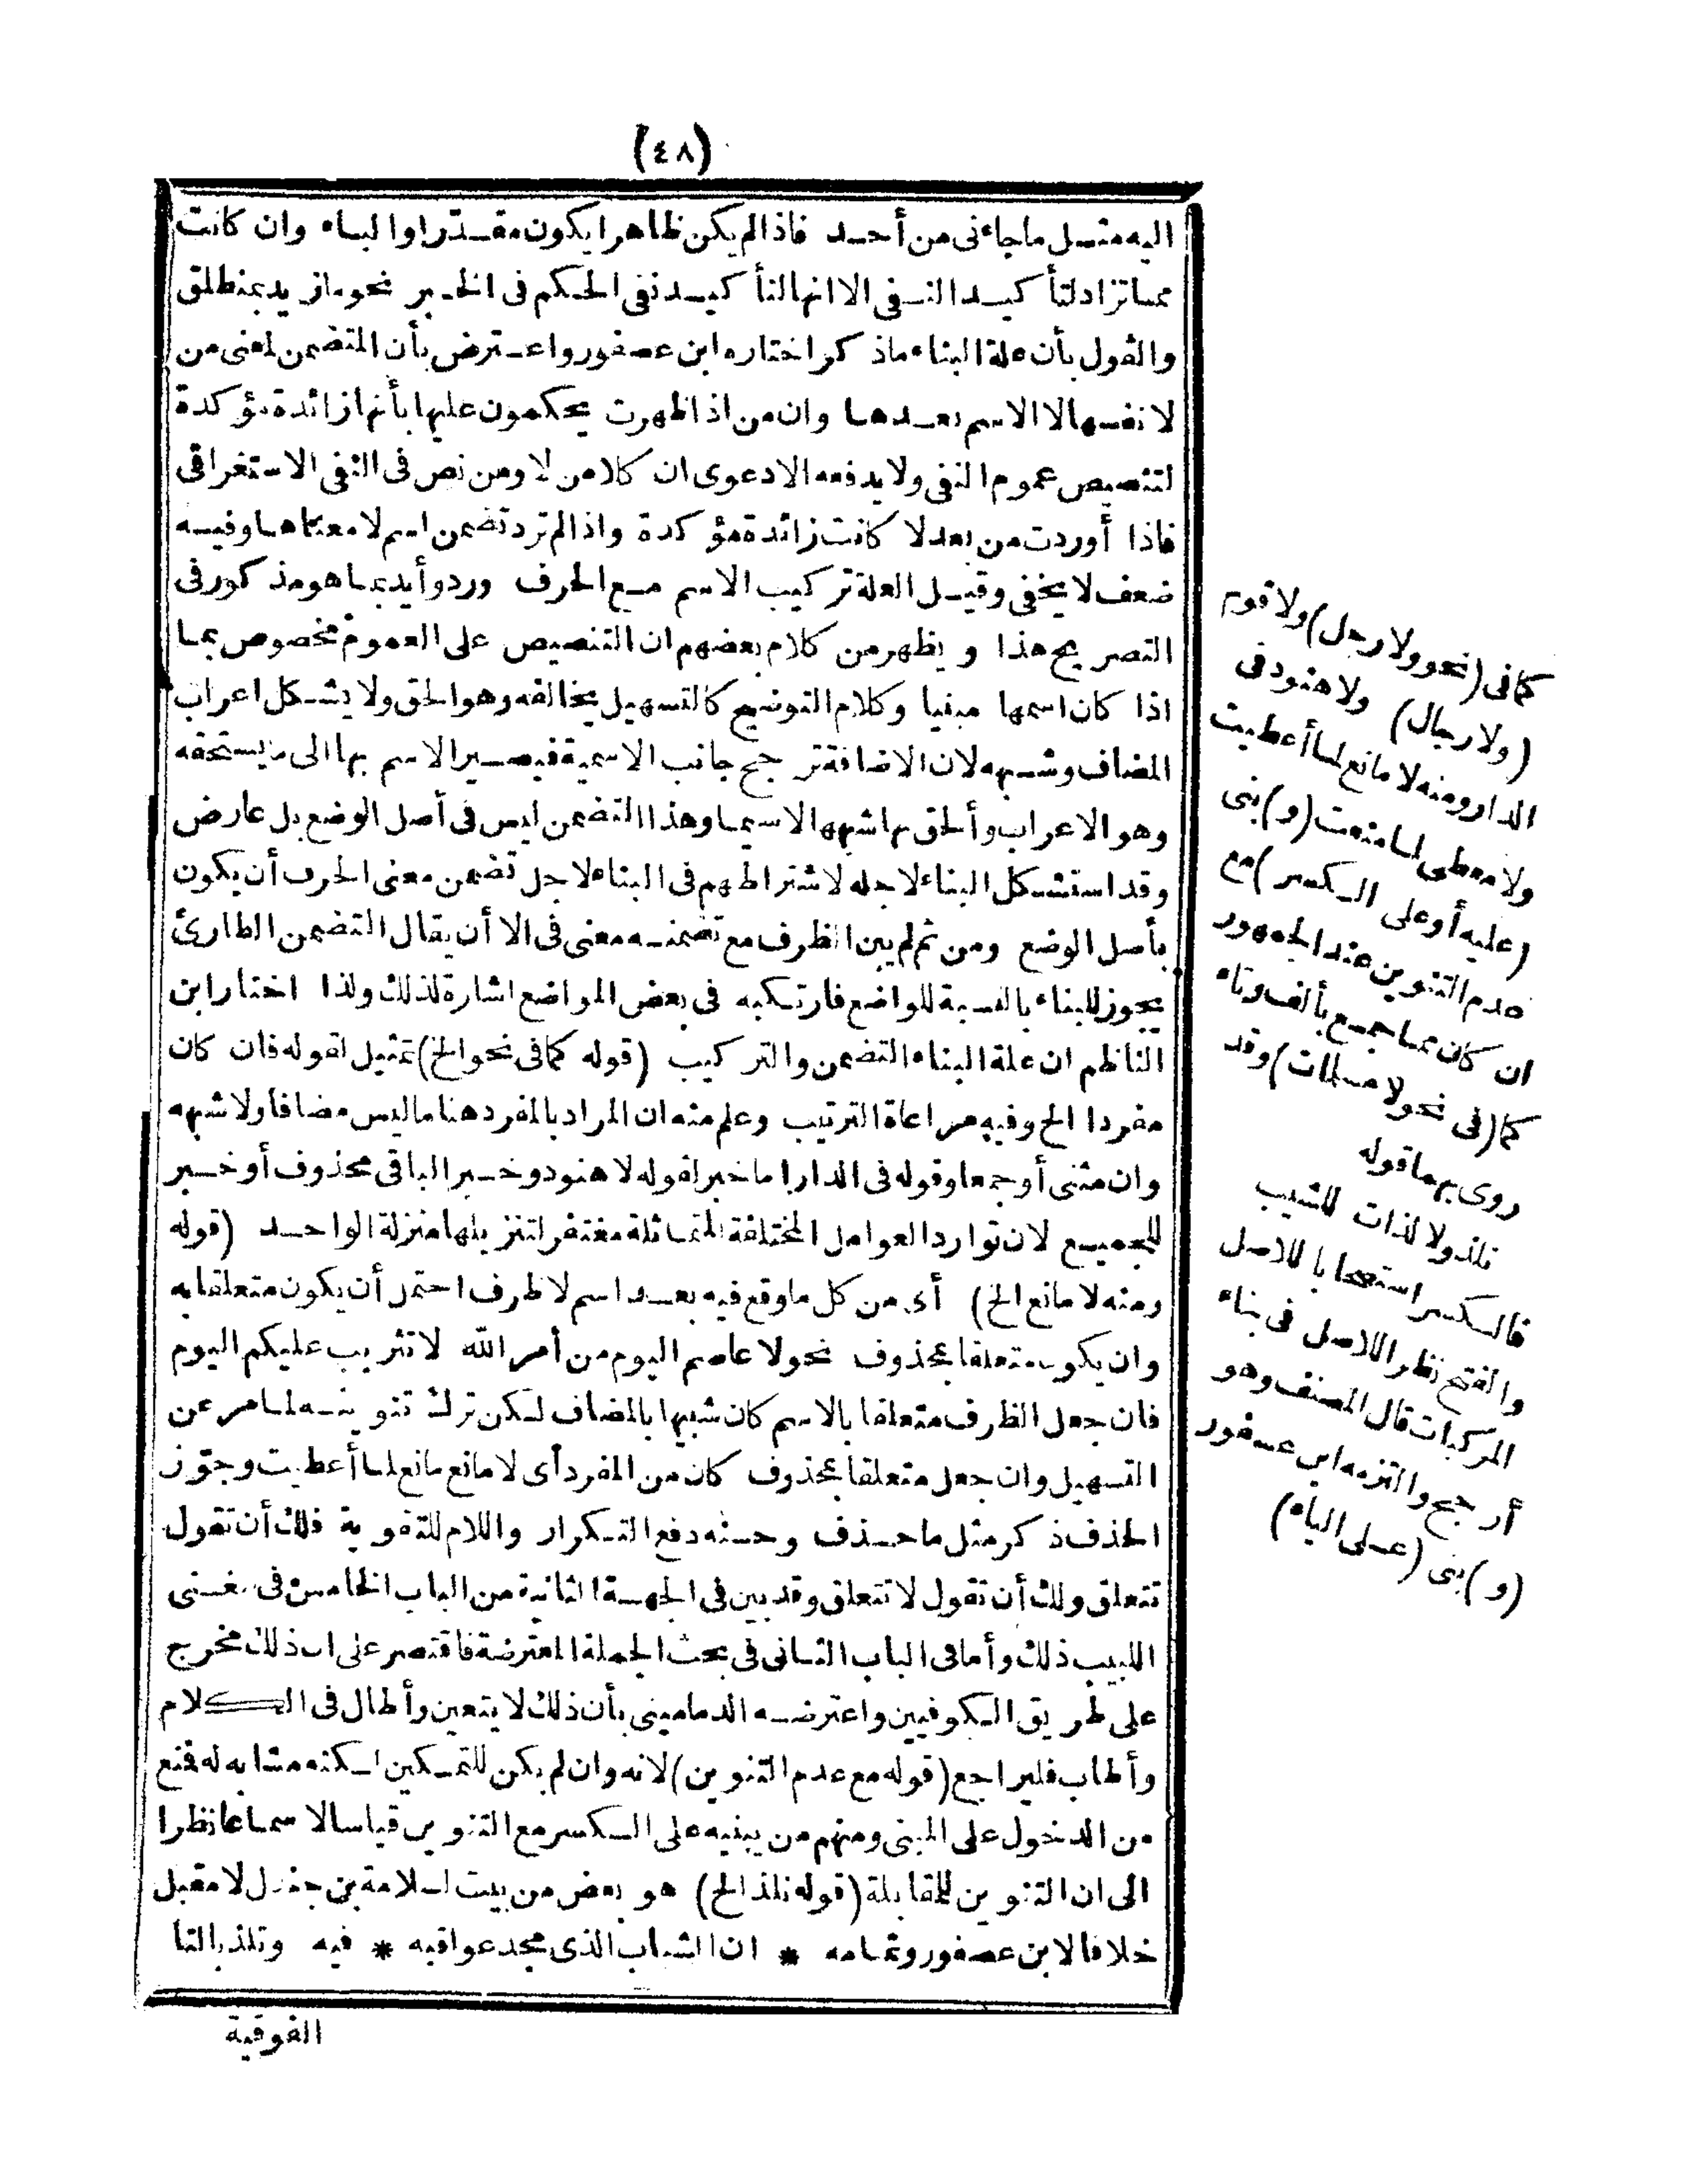 (٤٨)
اليه مثل ماجاءنى من أحد فاذالم يكن ظاهرا يكون مقدّرا والباء وان كانت
مماتزاد لتأكيد النفى الا انها لتأكيد نفى الحكم فى الخبر نحو مازيد بمنطلق
والقول بأن علة البناء ماذكر اختاره ابن عصفور واعترض بأن المتضمن لمعنى من
لا نفسها لا الاسم بعدها وان من اذا ظهرت يحكمون عليها بأنها زائدة مؤكدة
لتنصيص عموم النفى ولا يدفعه الا دعوى ان كلا من لا ومن نص فى النفى الاستغراقى
فاذا أوردت من بعد لا كانت زائدة مؤكدة واذا لم ترد تضمن اسم لا معناها وفيه
ضعف لا يخفى وقيل العلة تركيب الاسم مع الحرف ورد وأيد بما هو مذكور فى
التصريح هذا ويظهر من كلام بعضهم ان التنصيص على العموم مخصوص بما
اذا كان اسمها مبنيا وكلام التوضيح كالتسهيل يخالفه وهو الحق ولا يشكل اعراب
المضاف وشبهه لان الاضافة ترجح جانب الاسمية فيصير الاسم بها الى ما يستحقه
وهو الاعراب وألحق بها شبهها لاسيما وهذا التضمن ليس فى أصل الوضع بل عارض
وقد استشكل البناء لاجله لاشتراطهم فى البناء لاجل تضمن معنى الحرف أن يكون
بأصل الوضع ومن ثم لم يبن الظرف مع تضمنه معنى فى الا أن يقال التضمن الطارئ
يجوز للبناء بالنسبة للواضع فارتكبه فى بعض المواضع اشارة لذلك ولذا اختار ابن
الناظم ان علة البناء التضمن والتركيب (قوله كمافى نحو الخ) تمثيل لقوله فان كان
مفردا الخ وفيه مراعاة الترتيب وعلم منه ان المراد بالمفرد هنا ماليس مضافا ولا شبهه
وان مثنى أوجمعا وقوله فى الدار اما خبر لقوله لا هنود وخبر الباقى محذوف أو خبر
للجميع لان توارد العوامل المختلفة المتماثلة مغتفر لتنزيلها منزلة الواحد (قوله
ومنه لا مانع الخ) أى من كل ماوقع فيه بعد اسم لا ظرف احتمل أن يكون متعلقا به
وان يكون متعلقا بمحذوف نحو لا عاصم اليوم من أمر الله لا تثريب عليكم اليوم
فان جعل الظرف متعلقا بالاسم كان شبيها بالمضاف لكن ترك تنوينه لما مر عن
التسهيل وان جعل متعلقا بمحذوف كان من المفرد أى لا مانع مانع لما أعطيت وجوّز
الحذف ذكر مثل ماحذف وحسنه دفع التكرار واللام للتقوية فلك أن تقول
تتعلق ولك أن تقول لا تتعلق وقد بين فى الجهة الثانية من الباب الخامس فى مغنى
اللبيب ذلك وأما فى الباب الثانى فى بحث الجملة المعترضة فاقتصر على ان ذلك مخرج
على طريق الكوفيين واعترضه الدمامينى بأن ذلك لا يتعين وأطال فى الكلام
وأطاب فليراجع (قوله مع عدم التنوين) لانه وان لم يكن للتمكين لكنه مشابه له فمنع
من الدخول على المبنى ومنهم من يبنيه على الكسر مع التنوين قياسا لا سماعا نظرا
الى ان التنوين للمقابلة (قوله نلذ الخ) هو بعض من بيت لسلامة بن جندل لا مقبل
خلافا لابن عصفور وتمامه * ان الشباب الذى مجد عواقبه * فيه وتلذ بالتا
الفوقية
كمافى (نحو ولا رجل) ولا قوم
(ولا رجال) ولا هنود فى
الدار ومنه لا مانع لما أعطيت
ولا معطى لما منعت (و) بنى
(عليه أو على الكسر) مع
عدم التنوين عند الجمهور
ان كان مما جمع بألف وتاء
كما (فى نحو لا مسلمات) وقد
روى بهما قوله
نلذ ولا لذات للشيب
فالكسر استصحابا للاصل
والفتح نظرا للاصل فى بناء
المركبات قال المصنف وهو
أرجح والتزمه ابن عصفور
(و) بنى (على الياء)